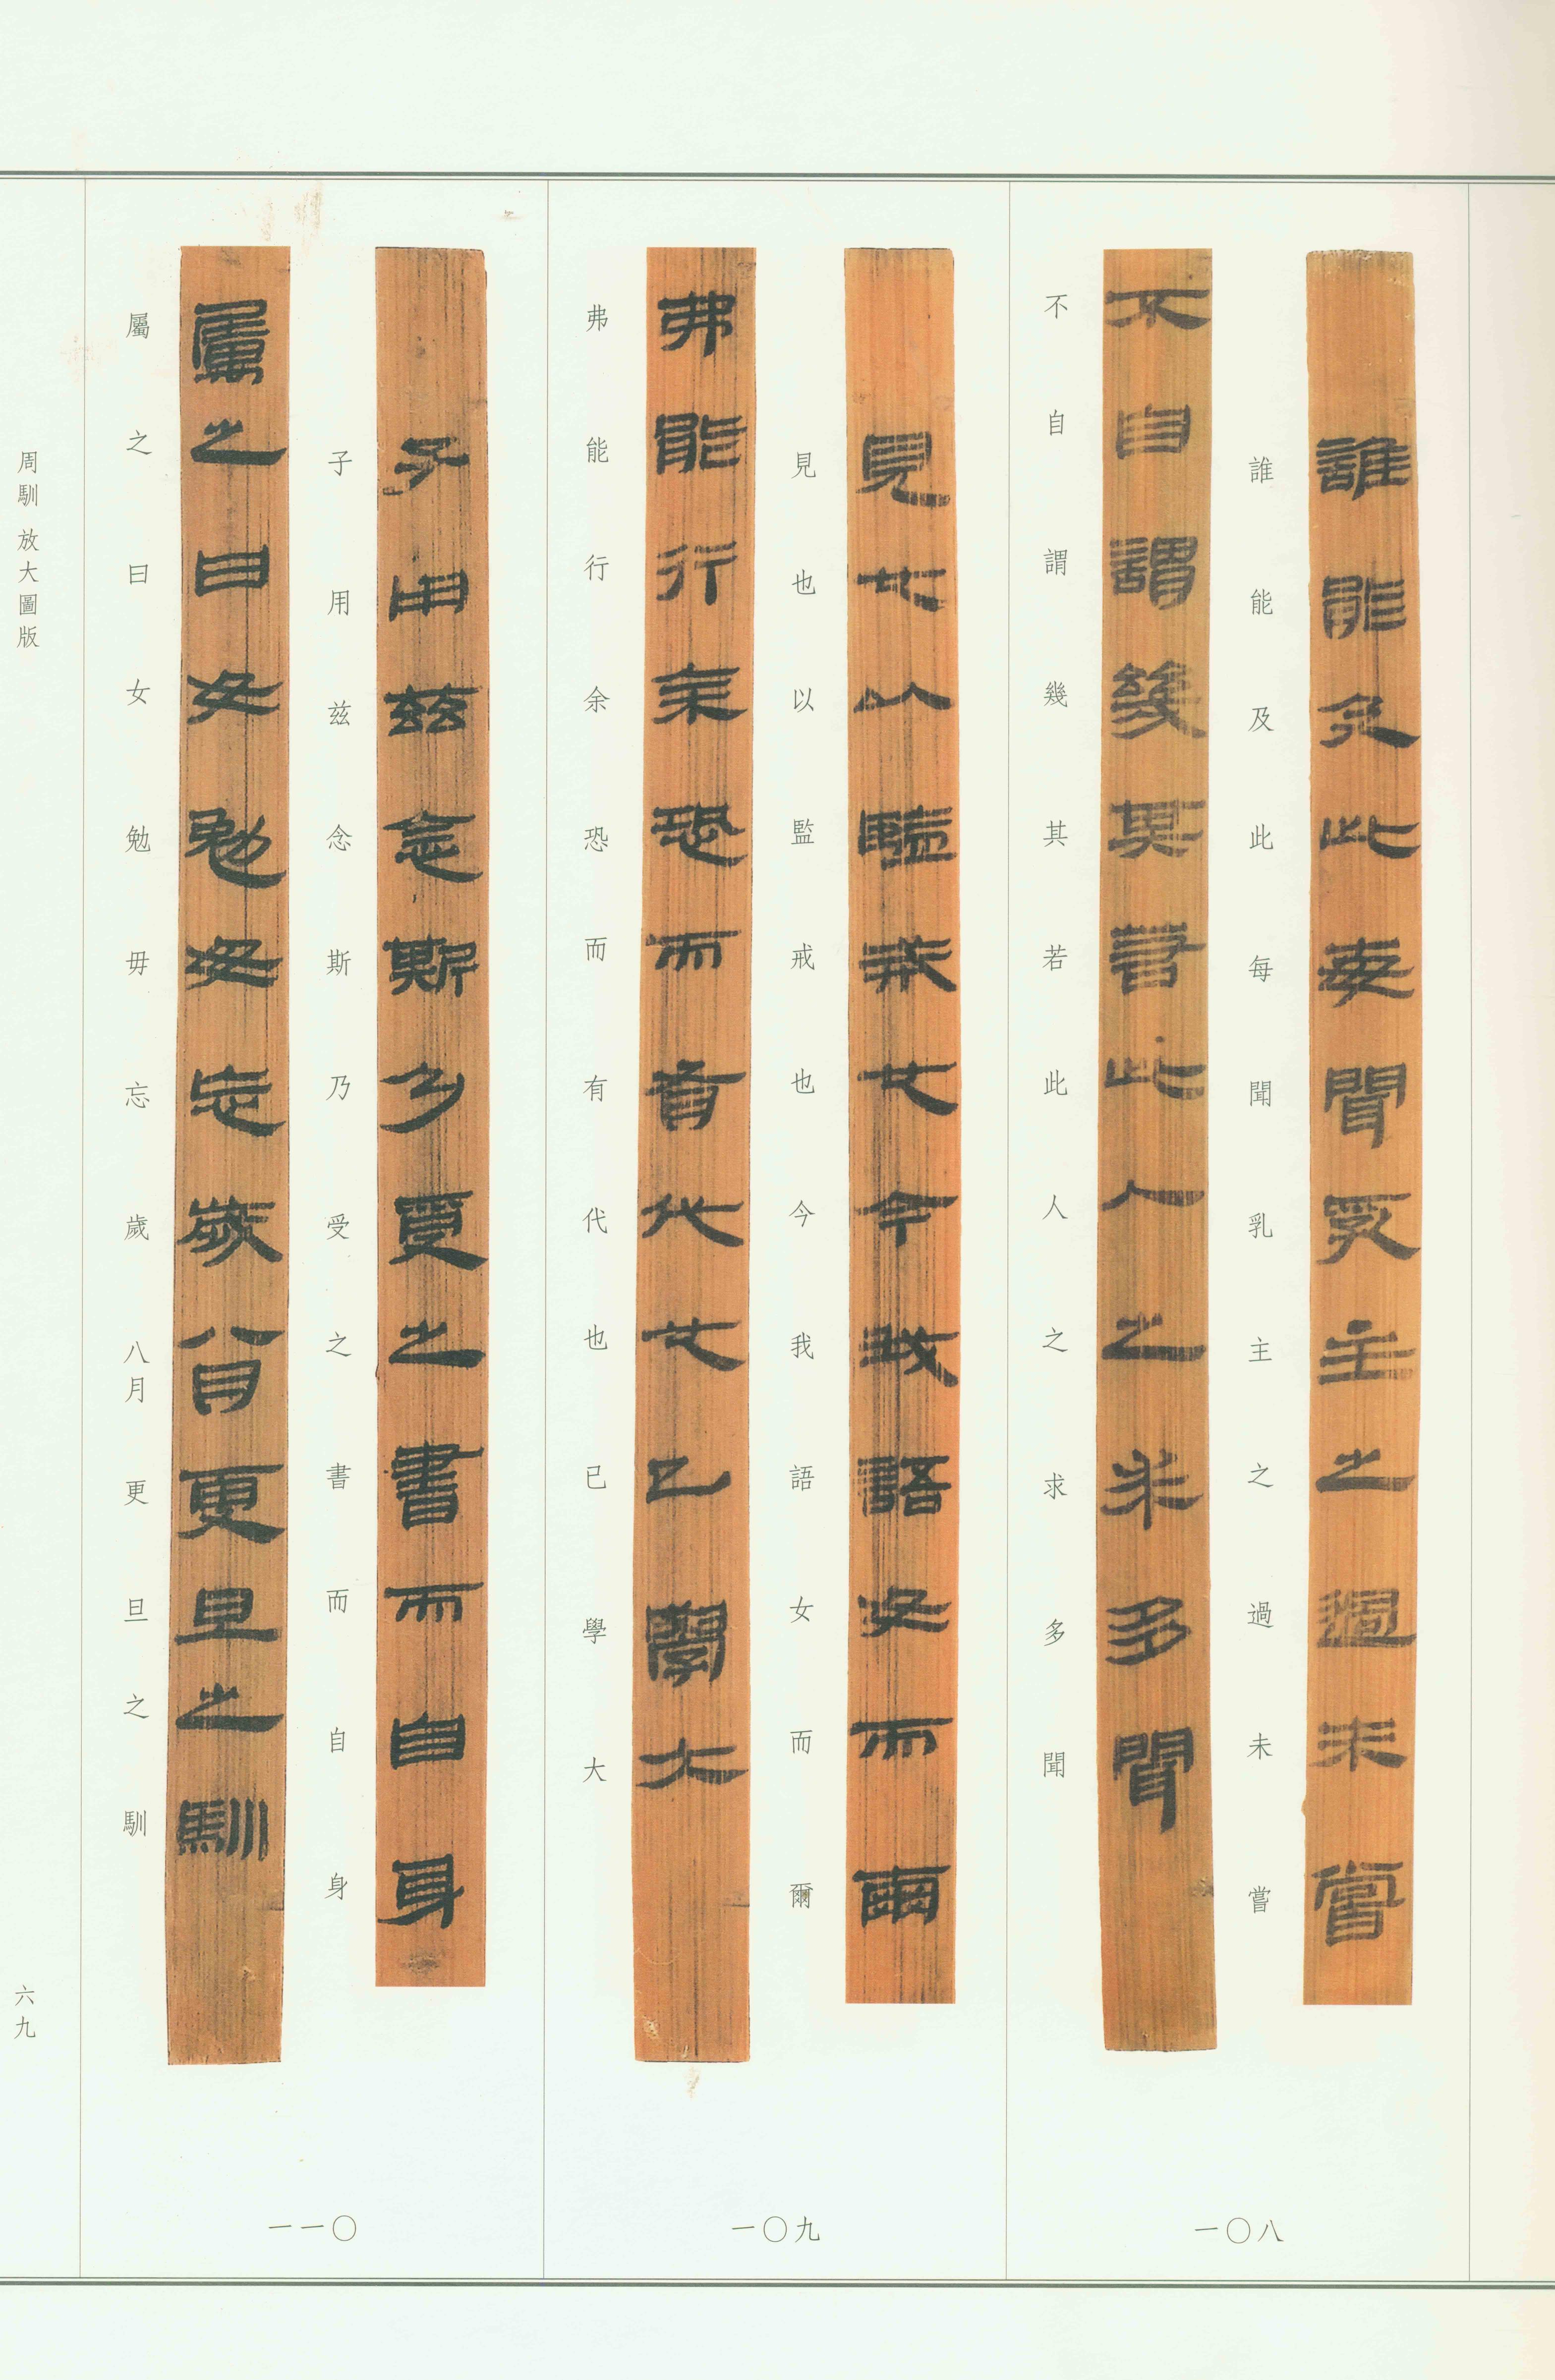 誰能及此每聞乳主之過未嘗
不自謂幾其若此人之求多聞
一〇八
見也以監戒也今我語女而爾
弗能行余恐而有代也已學大
一〇九
子用茲念斯乃受之書而自身
屬之曰女勉毋忘歲八月更旦之馴
一一〇
周馴 放大圖版
六九